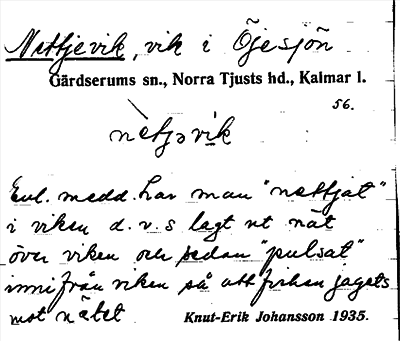 Nettjevik, vik i Öjesjön
Gärdserums sn., Norra Tjusts hd., Kalmar l.
56.
nètjəvik
Enl. medd. har man "nettjat"
i viken d.v.s lagt ut nät
över viken och sedan "pulsat"
inni från viken så att fisken jagets
mot nätet
Knut-Erik Johansson 1935.